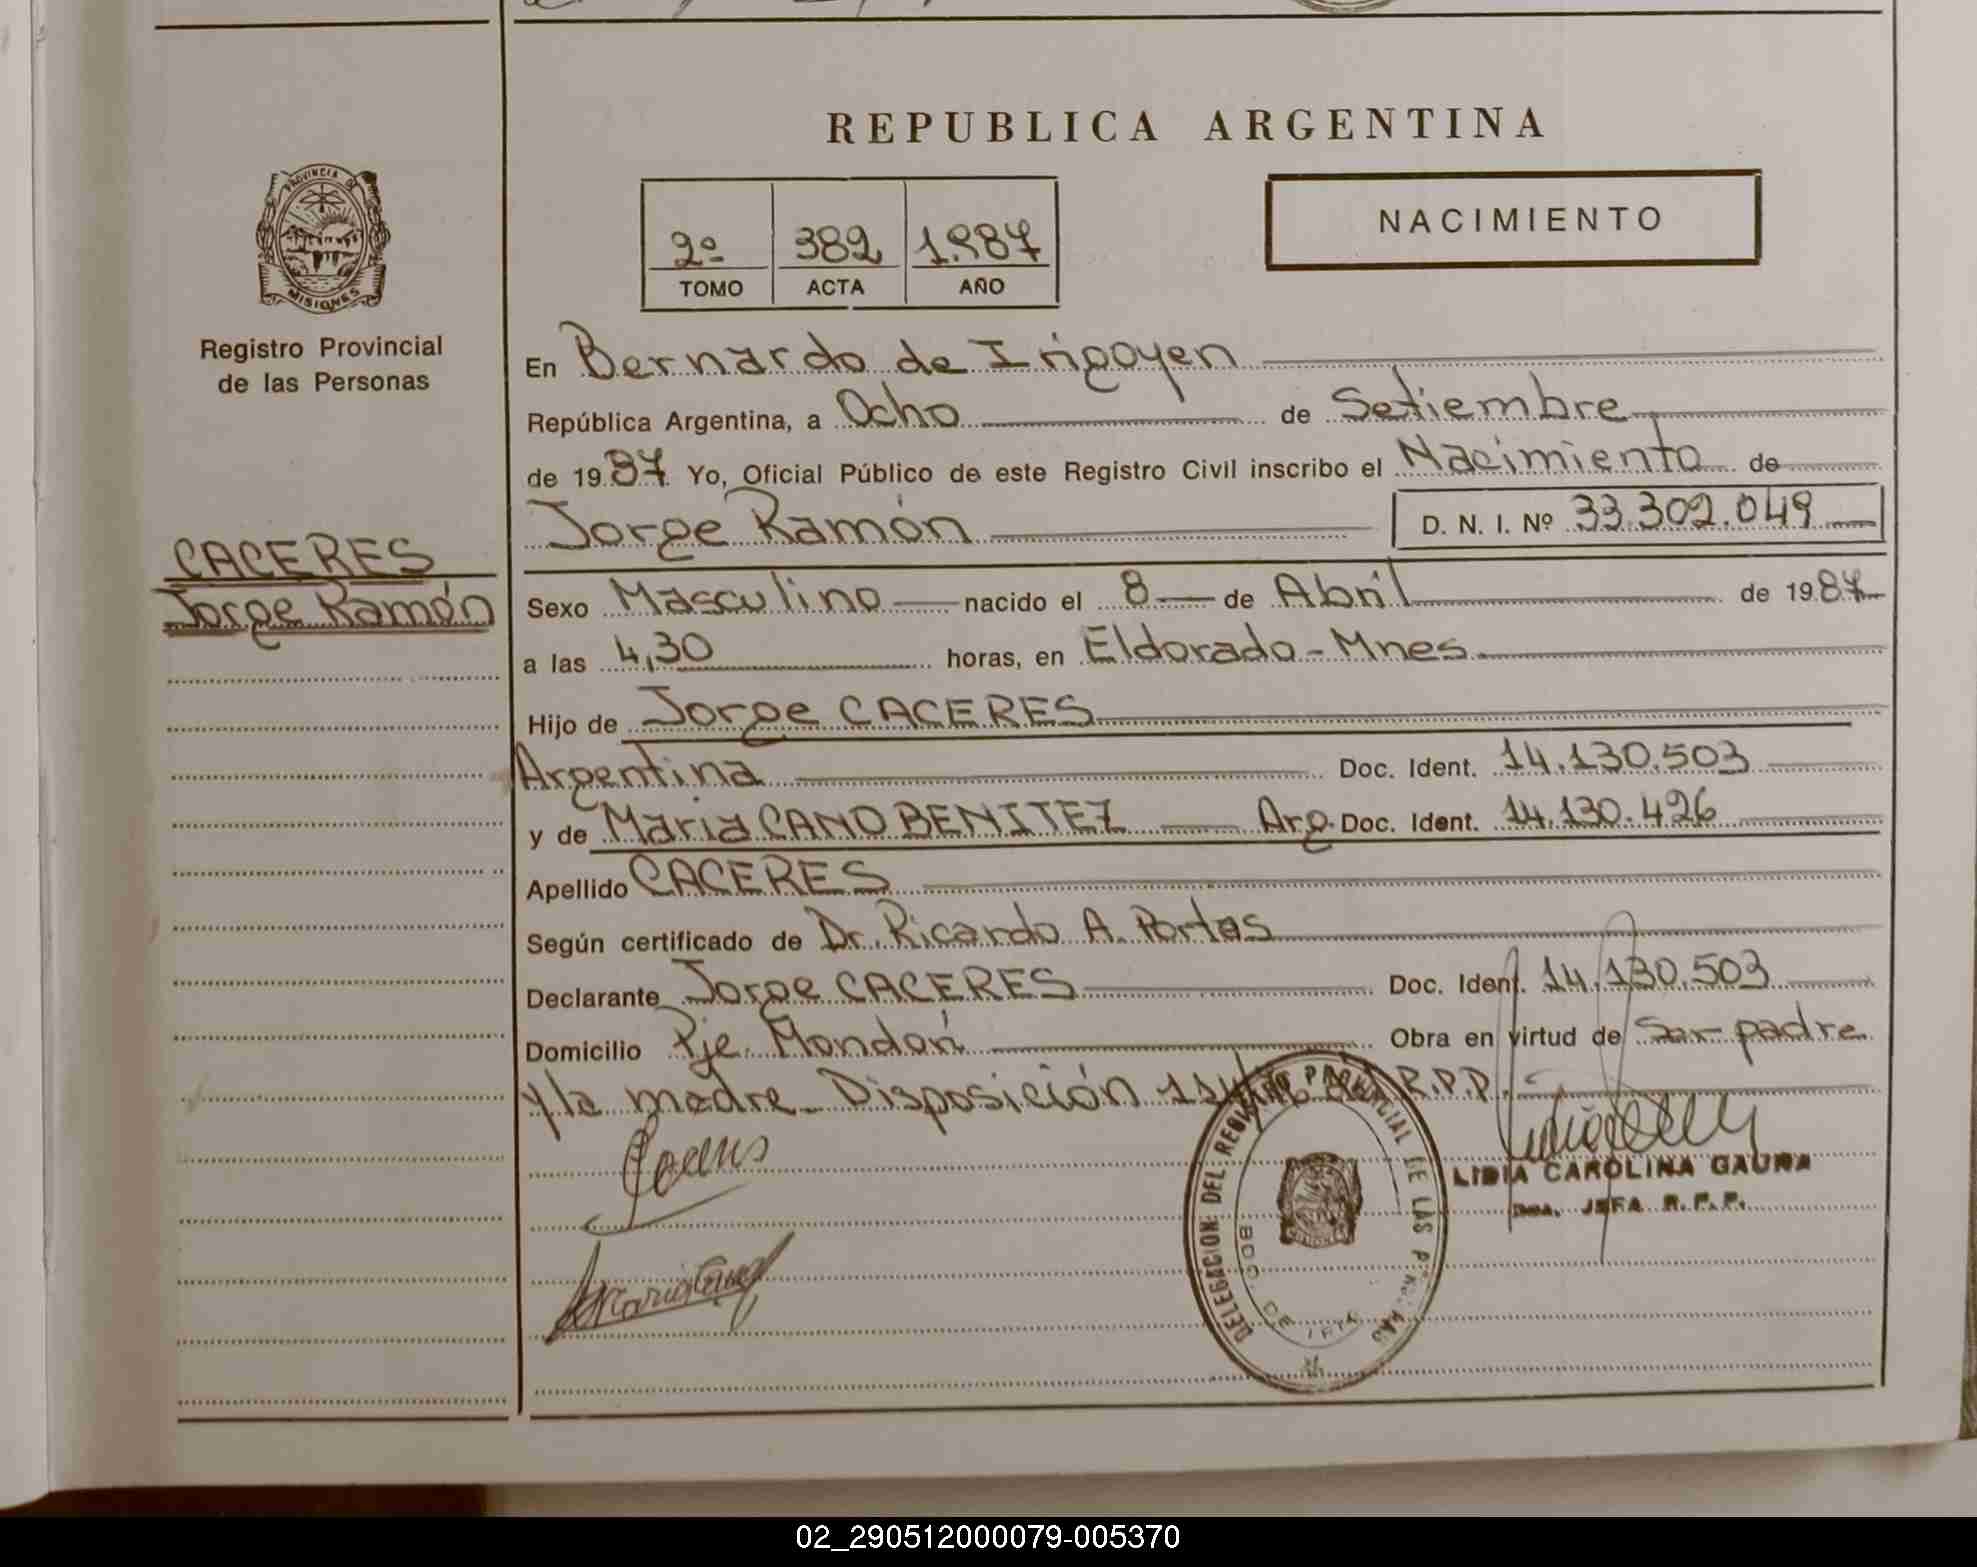 REPUBLICA ARGENTINA
PROVINCIA DE
MISIONES
Registro Provincial
de las Personas
NACIMIENTO
2º 382 1.987
TOMO ACTA AÑO
En Bernardo de Irigoyen
República Argentina, a Ocho de Setiembre
de 1987 Yo, Oficial Público de este Registro Civil inscribo el Nacimiento de
Jorge Ramón D. N. I. Nº 33.302.049
CACERES
Jorge Ramón
Sexo Masculino nacido el 8 de Abril de 1987
a las 4,30 horas, en Eldorado - Mnes
Hijo de Jorge CACERES
Argentina Doc. Ident. 14.130.503
y de Maria CANO BENITEZ Arg. Doc. Ident. 14.130.426
Apellido CACERES
Según certificado de Dr. Ricardo A. Portas
Declarante Jorge CACERES Doc. Ident. 14.130.503
Domicilio Pje. Mondorí Obra en virtud de Ser padre
y la madre. Disposición R.P.P.
DELEGACION DEL REGISTRO PROVINCIAL DE LAS PERSONAS
BDO. DE IRIG
LIDIA CAROLINA GAUNA
JEFA R.P.P.
02_290512000079-005370